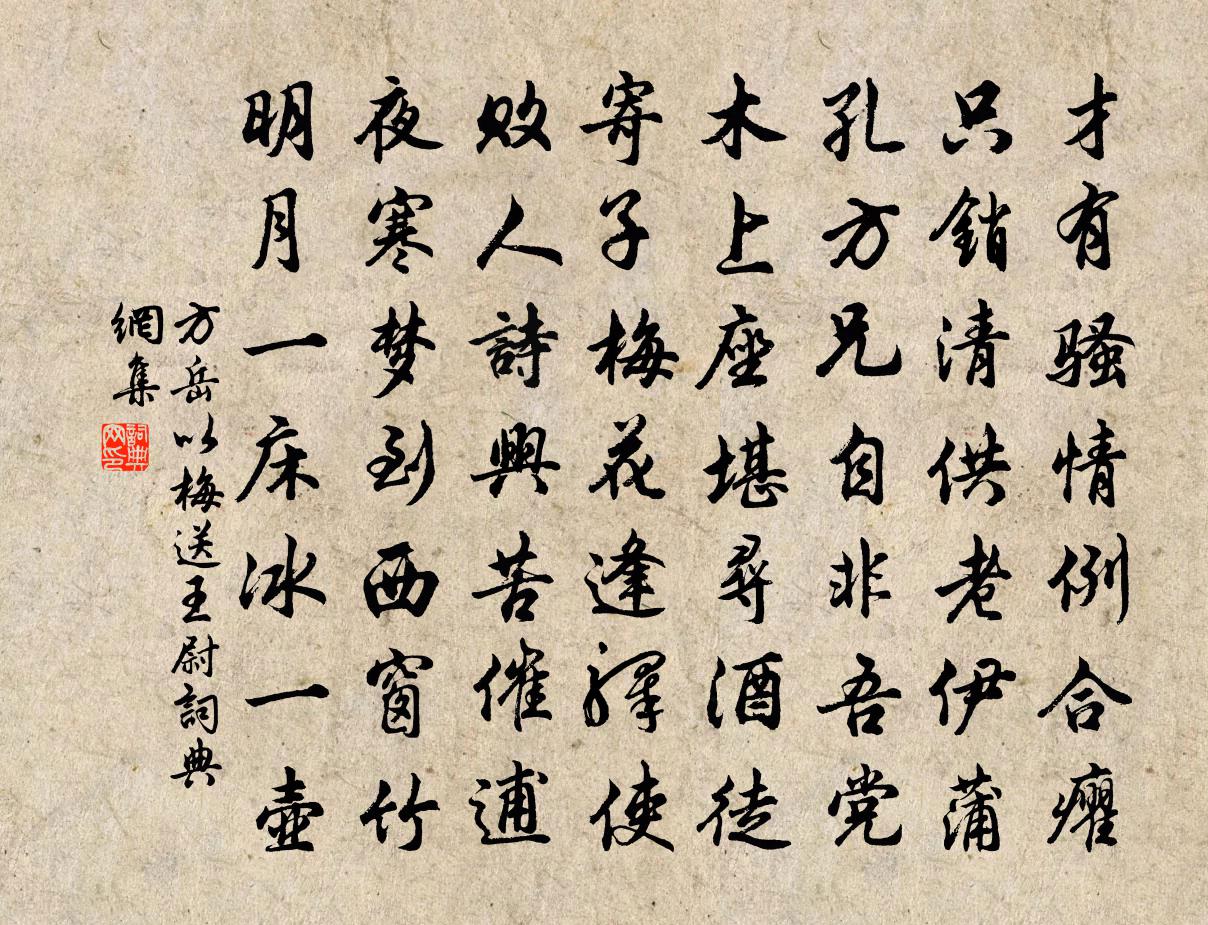 才有骚情例合癯
只銷清供老伊蒲
孔方兄自非吾党
木上座堪尋酒徒
寄子梅花逢驛使
败人詩興苦催逋
夜寒梦到西窗竹
明月一床冰一壺
方岳以梅送王尉詞典
網集
詞典
网印